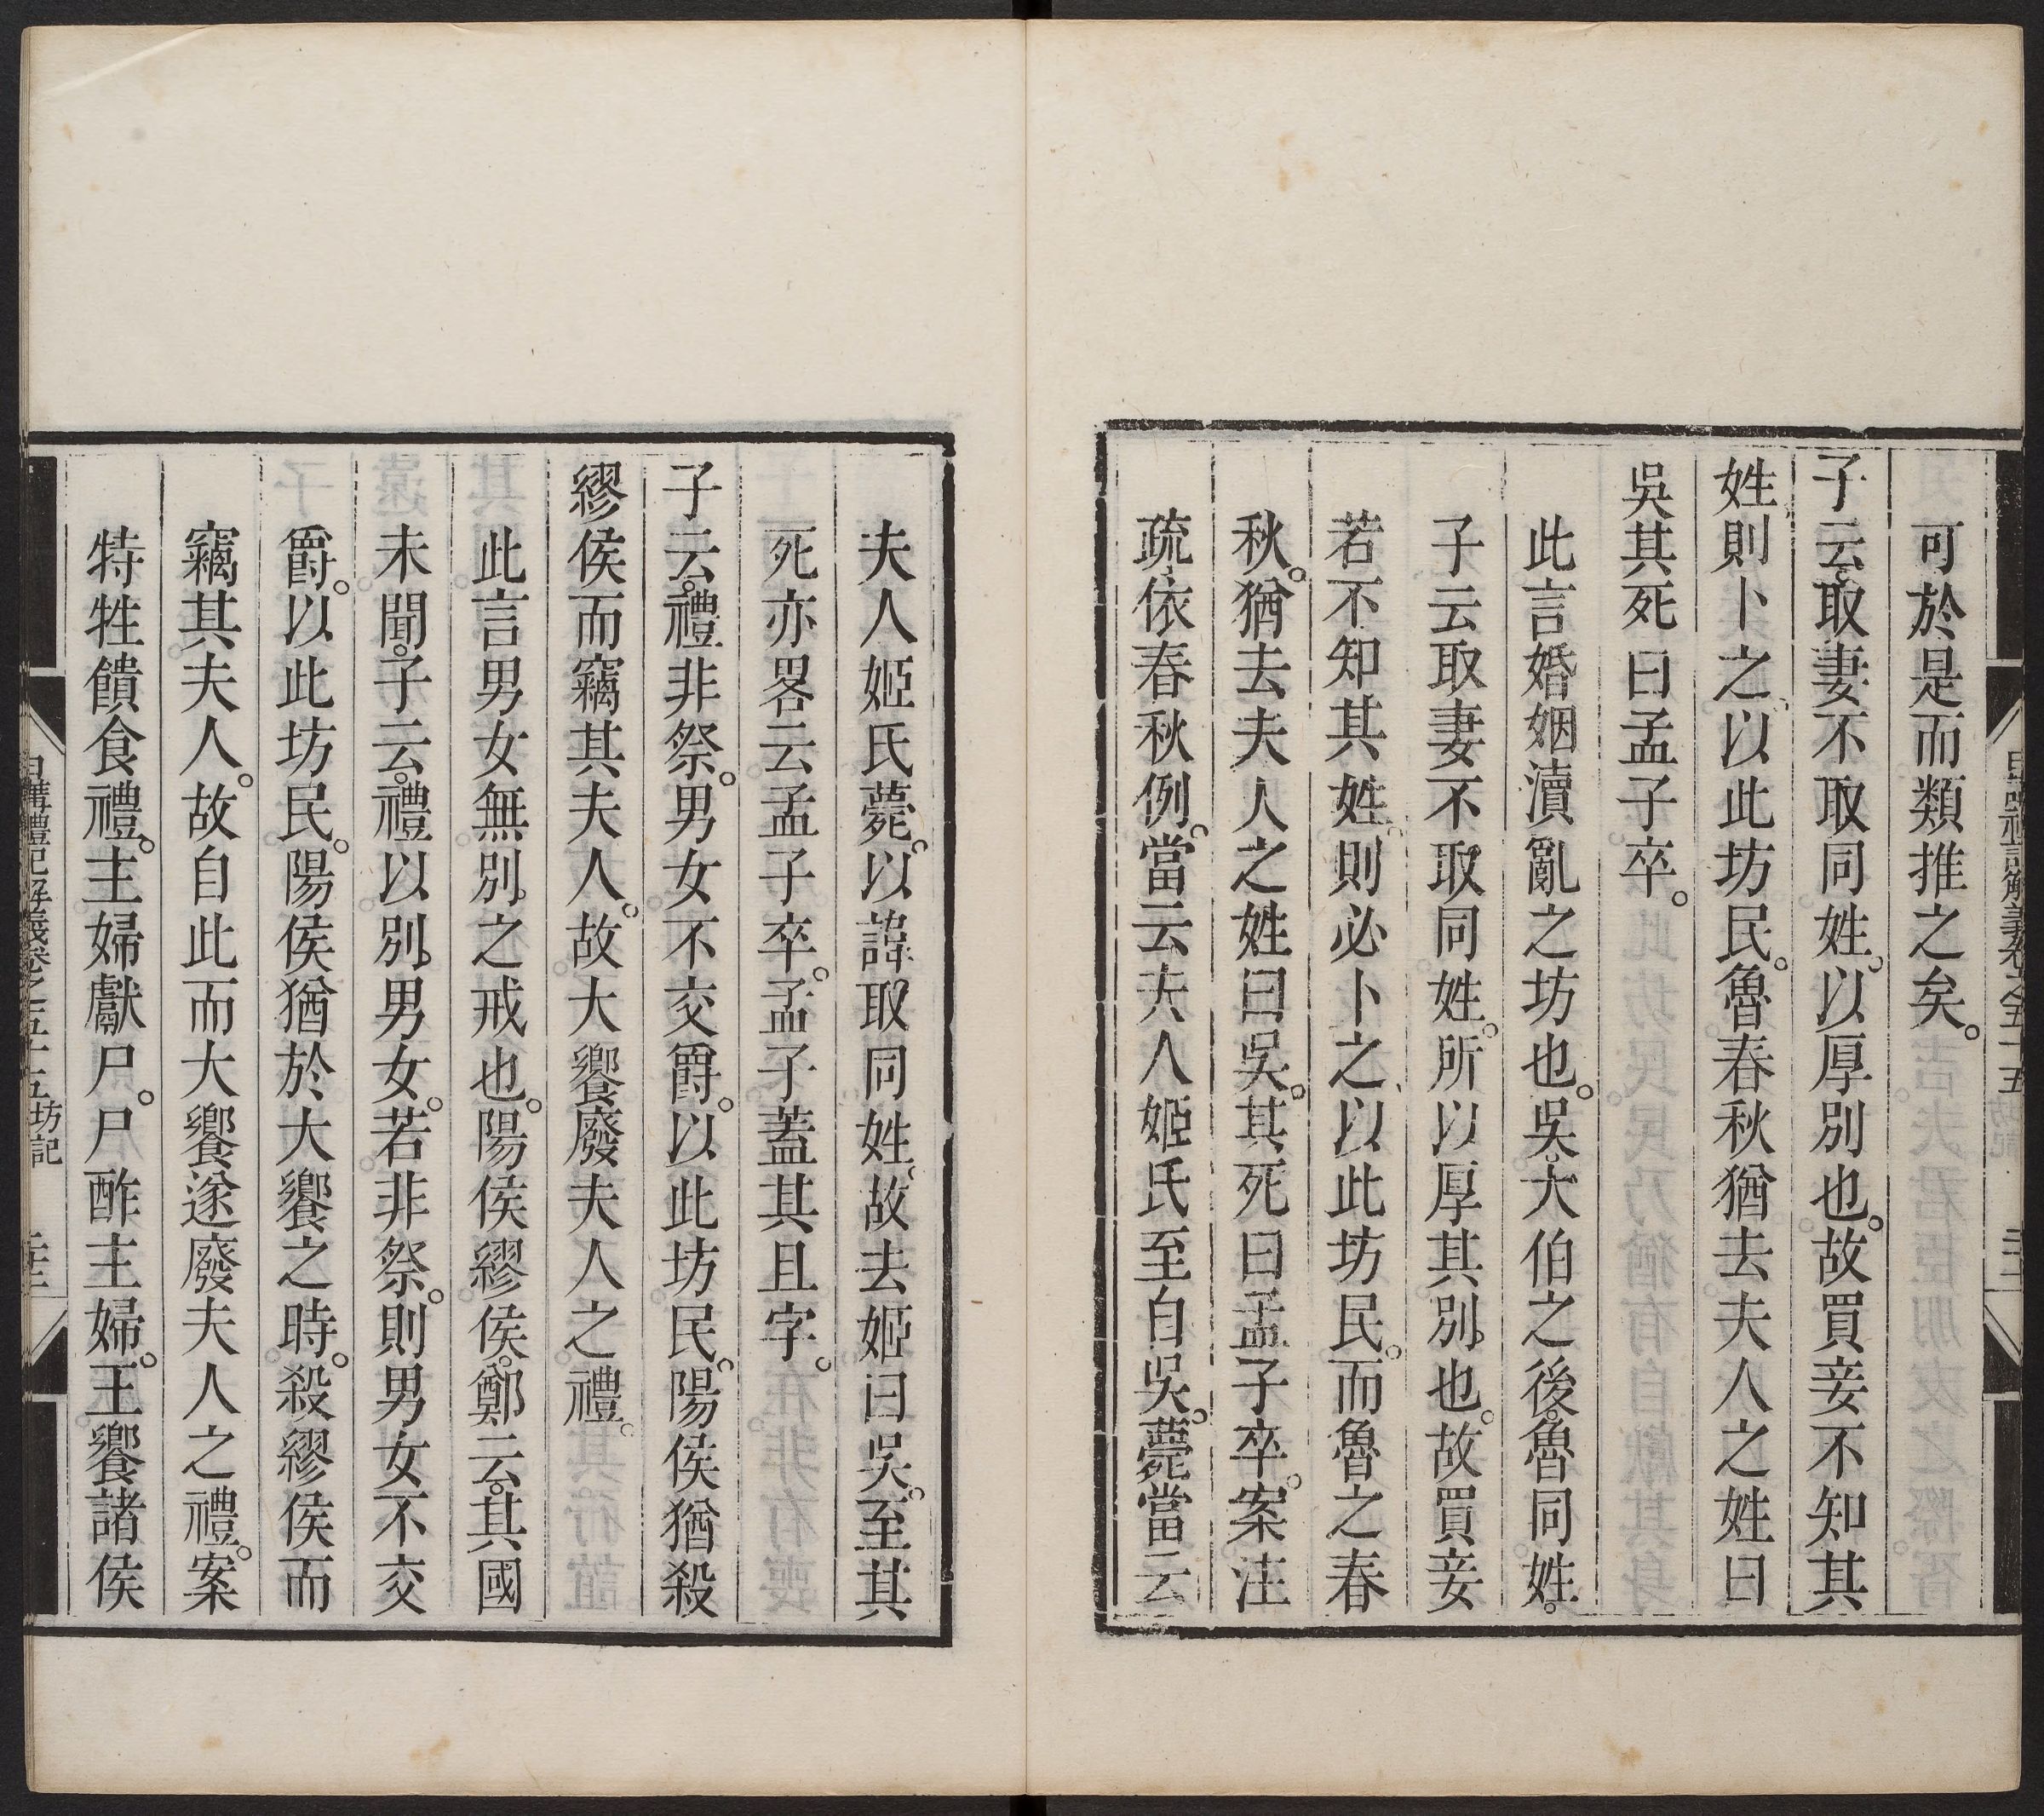 可於是而類推之矣。
子云。取妻不取同姓。以厚別也。故買妾不知其
姓、則卜之、以此坊民。魯春秋猶去夫人之姓曰
吳其死曰孟子卒。
此言婚姻瀆亂之坊也。吳。大伯之後。魯同姓。
子云取妻不取同姓。所以厚其別也。故買妾
若不知其姓。則必卜之、以此坊民。而魯之春
秋。猶去夫人之姓曰吳。其死曰孟子卒。案注
疏。依春秋例。當云夫人姬氏至自吳。薨當云
夫人姬氏薨。以諱取同姓。故去姬曰吳。至其
死亦畧云孟子卒。孟子蓋其且字。
子云。禮非祭。男女不交爵。以此坊民。陽侯猶殺
繆侯而竊其夫人。故大饗廢夫人之禮。
此言男女無別之戒也。陽侯繆侯。鄭云。其國
未聞。子云。禮以別男女。若非祭。則男女不交
爵。以此坊民。陽侯猶於大饗之時。殺繆侯而
竊其夫人。故自此而大饗遂廢夫人之禮。案
特牲饋食禮。主婦獻尸。尸酢主婦。王饗諸侯
日講禮記解義卷之五十五 坊記